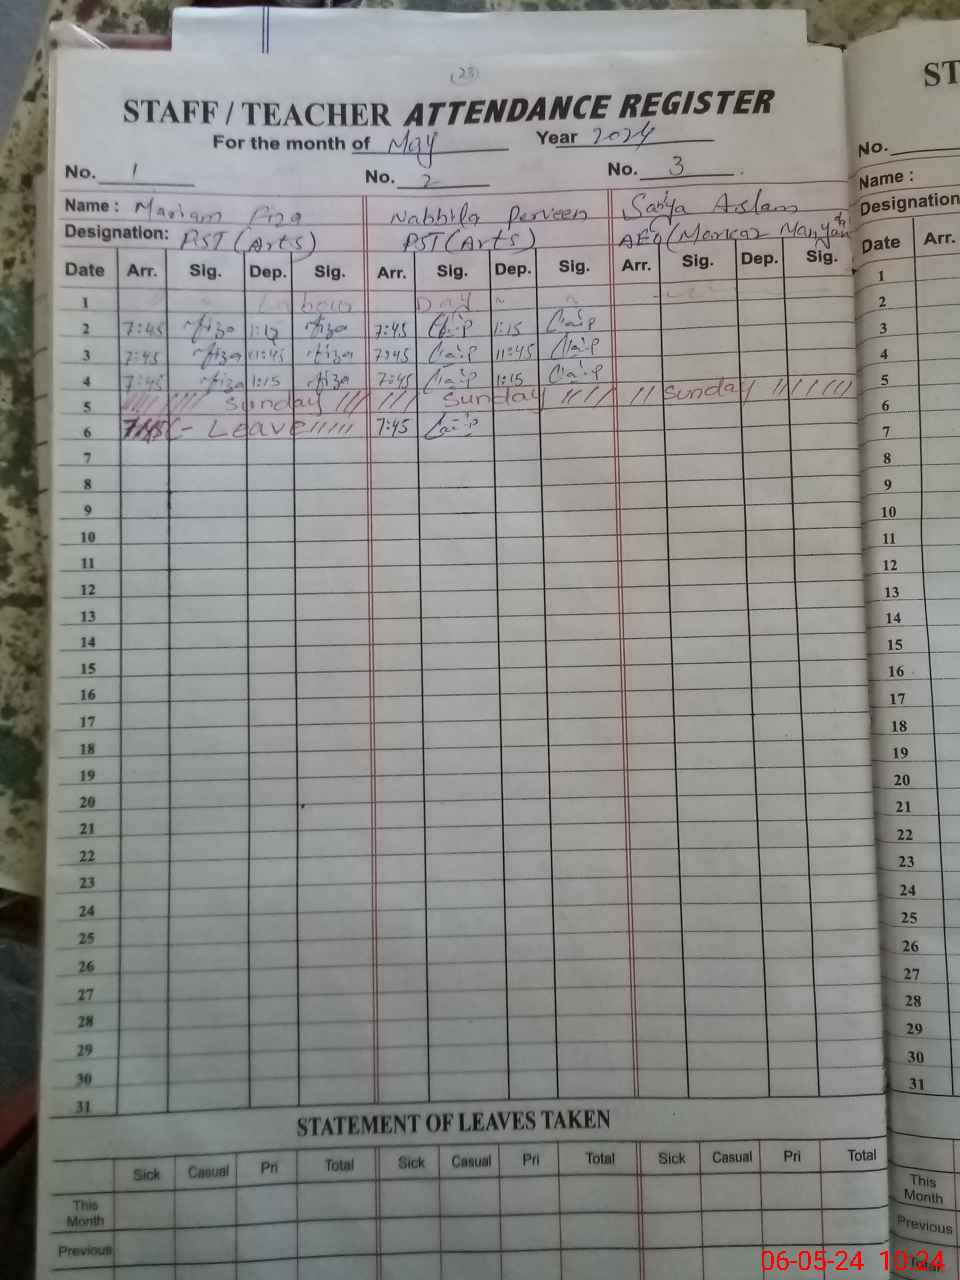 (23)
STAFF / TEACHER ATTENDANCE REGISTER
For the month of May Year 2024
No. 1 No. 2 No. 3
Name : Mariam Fiza Nabbila Perveen Saiya Aslam
Designation: PST (Arts) PST (Arts) AEO (Markaz
Date Arr. Sig. Dep. Sig. Arr. Sig. Dep. Sig. Arr. Sig. Dep. Sig.
1 Labour Day
2 7:45 Afiza 1:15 Afiza 7:45 1:15
3 7:45 Afiza 11:45 Afiza 7:45 11:45
4 7:45 Afiza 1:15 Afiza 7:45 1:15
5 Sunday Sunday Sunday
6 C - Leave 7:45
7
8
9
10
11
12
13
14
15
16
17
18
19
20
21
22
23
24
25
26
27
28
29
30
31
STATEMENT OF LEAVES TAKEN
Sick Casual Pri Total Sick Casual Pri Total Sick Casual Pri Total
This Month
Previous
ST
No.
Name :
Designation
Date Arr.
1
2
3
4
5
6
7
8
9
10
11
12
13
14
15
16
17
18
19
20
21
22
23
24
25
26
27
28
29
30
31
This Month
Previous
Total
06-05-24 10:24